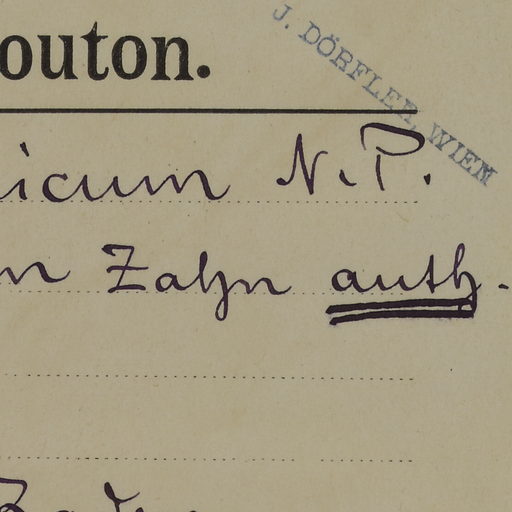 outon.
J. DÖRFLER, WIEN
icum N. P.
n Zahn auth.